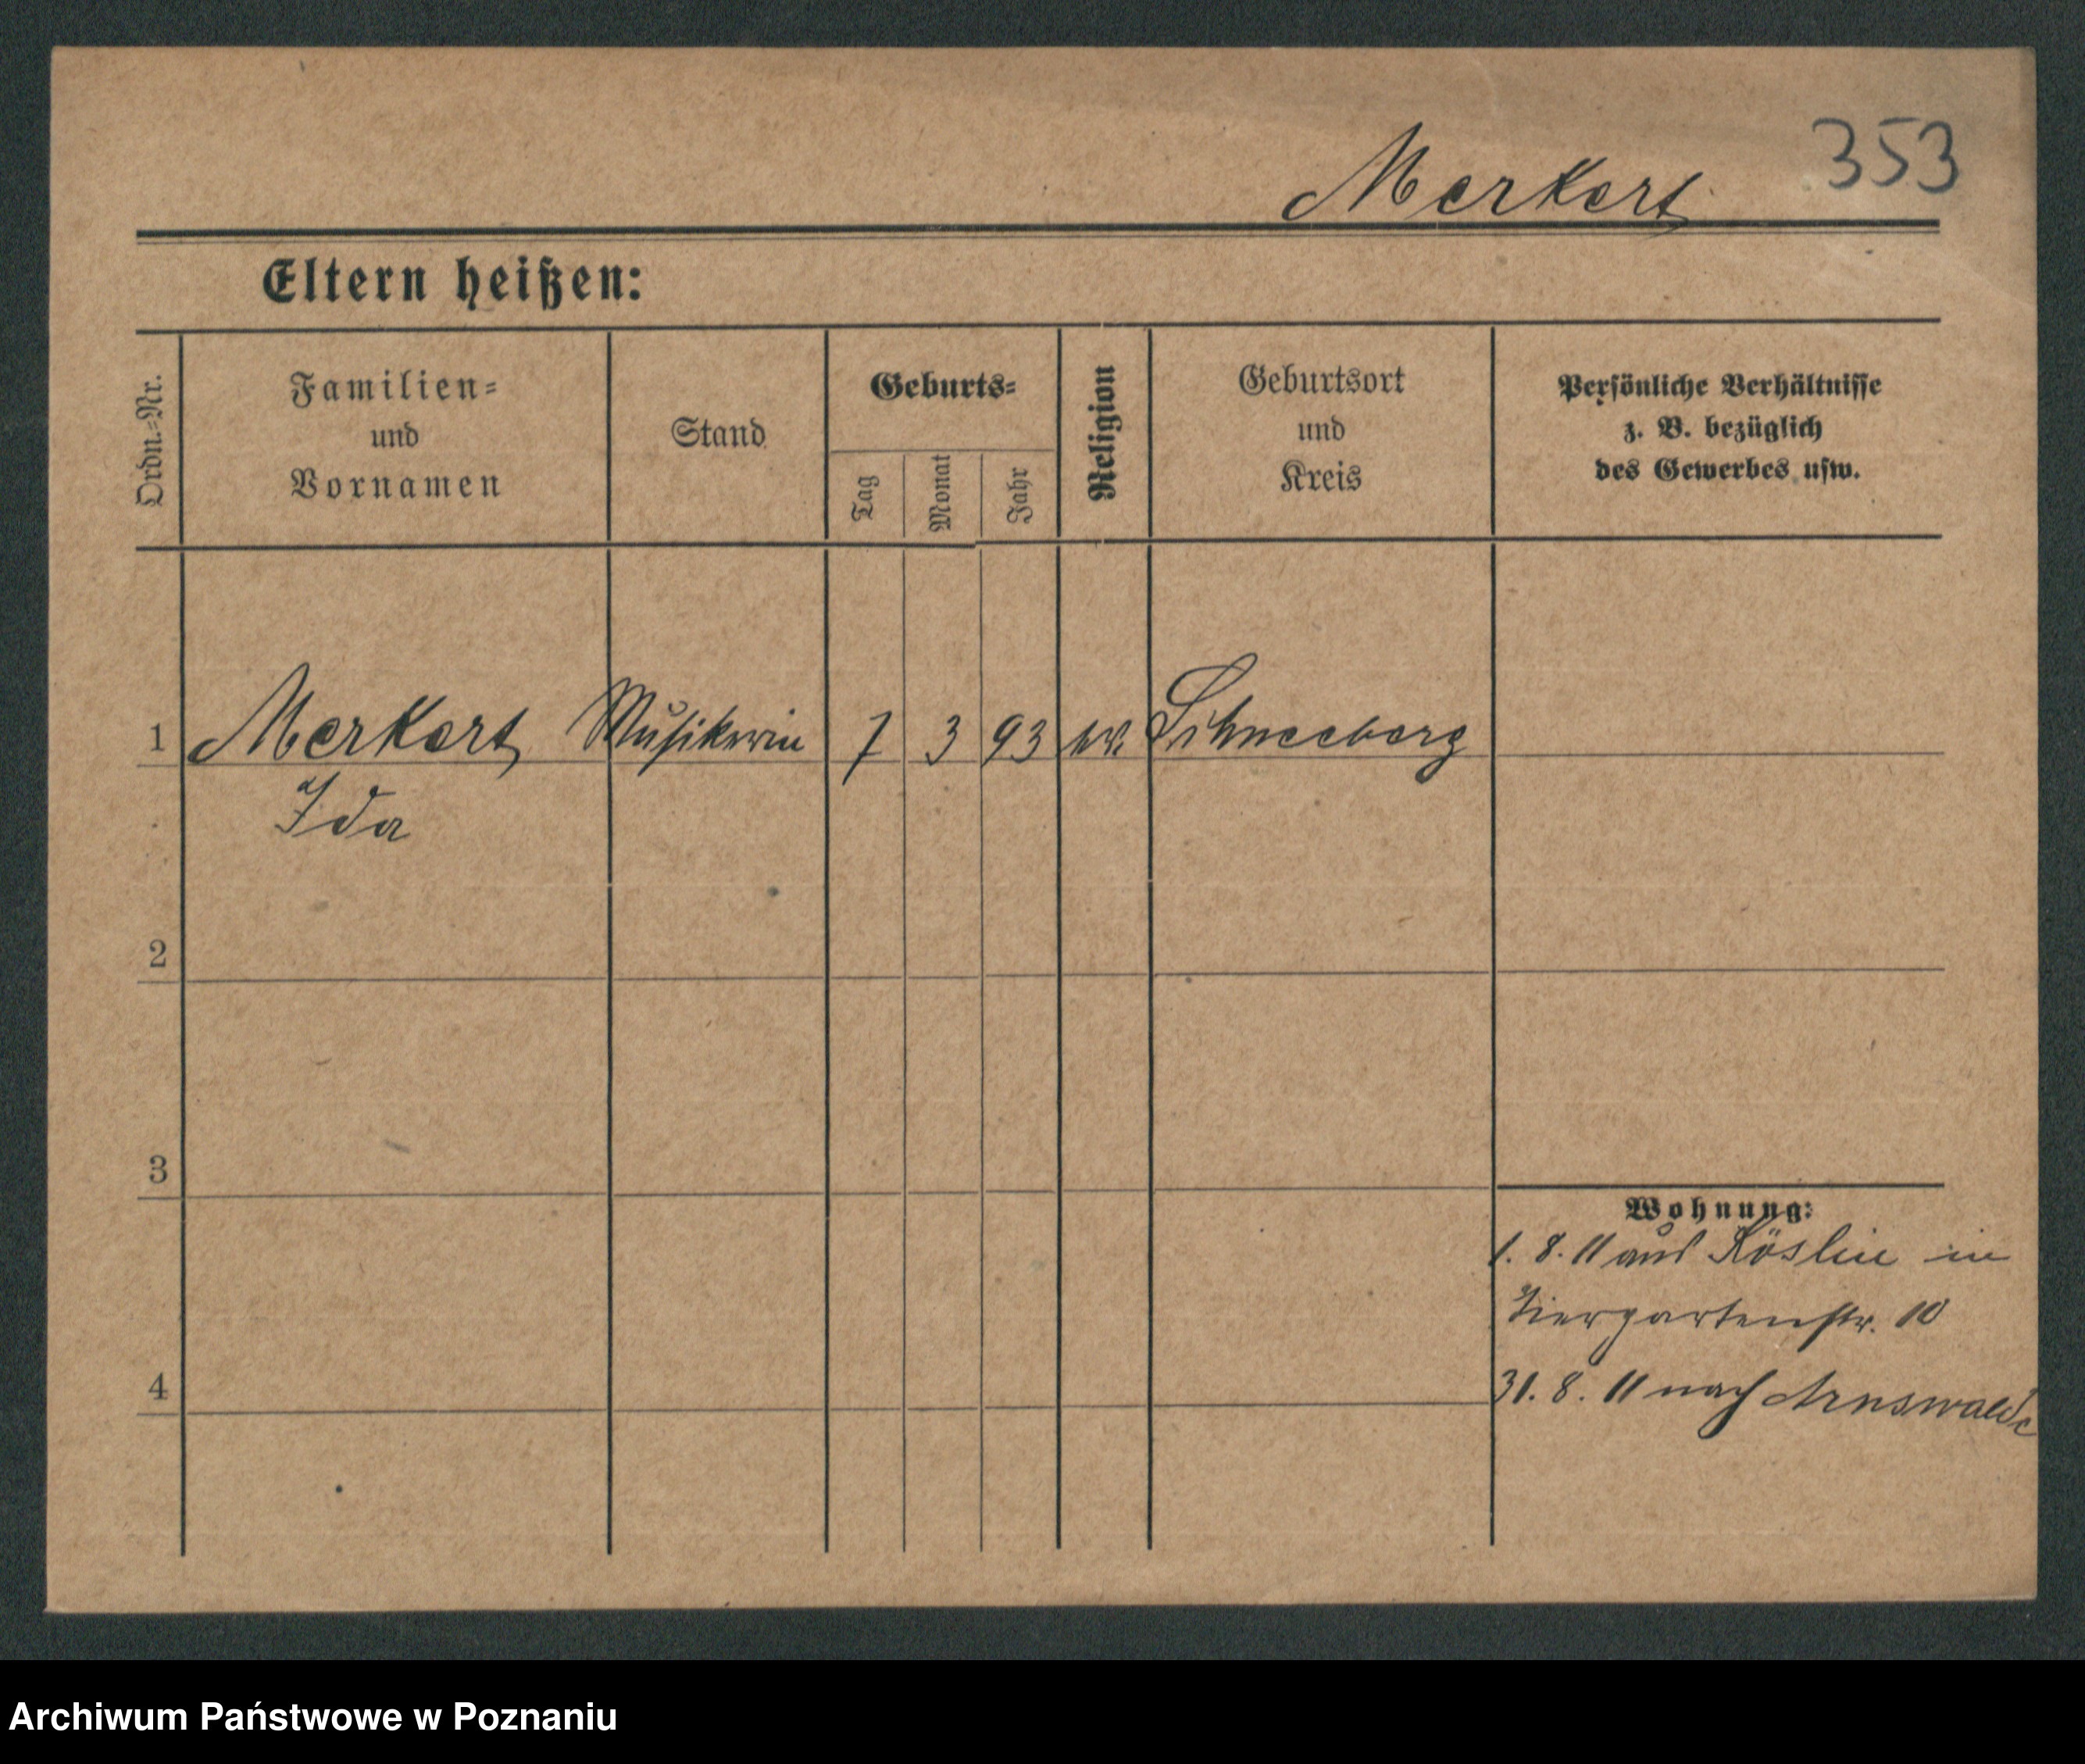 353
Merkert
Eltern heißen:
Ordn.-Nr.
Familien-
und
Vornamen
Stand
Geburts-
Tag
Monat
Jahr
Religion
Geburtsort
und
Kreis
Persönliche Verhältnisse
z. B. bezüglich
des Gewerbes usw.
1 Merkert 7 3 93 Schneeberg
Ida
2
3
4
Wohnung:
1. 8. 11 aus Köslin in
Tiergartenstr. 10
31. 8. 11 nach Arnswalde
Archiwum Państwowe w Poznaniu